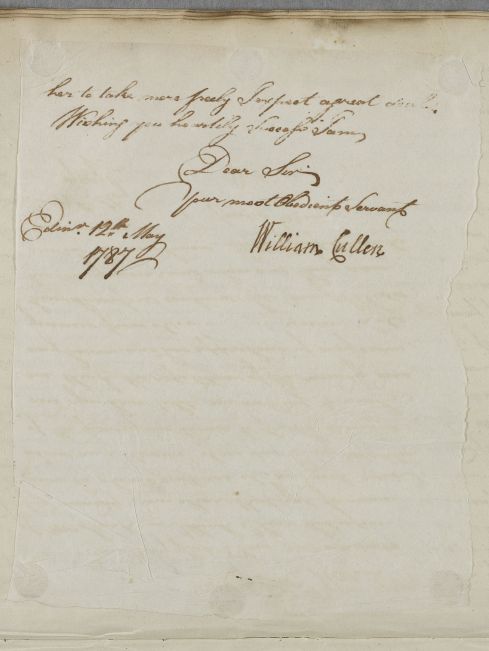 her to take more freely I expect a great deal.
Wishing you heartily Success I am
Dear Sir
your most Obedient Servant
Edinr. 12th. May
1787
William Cullen